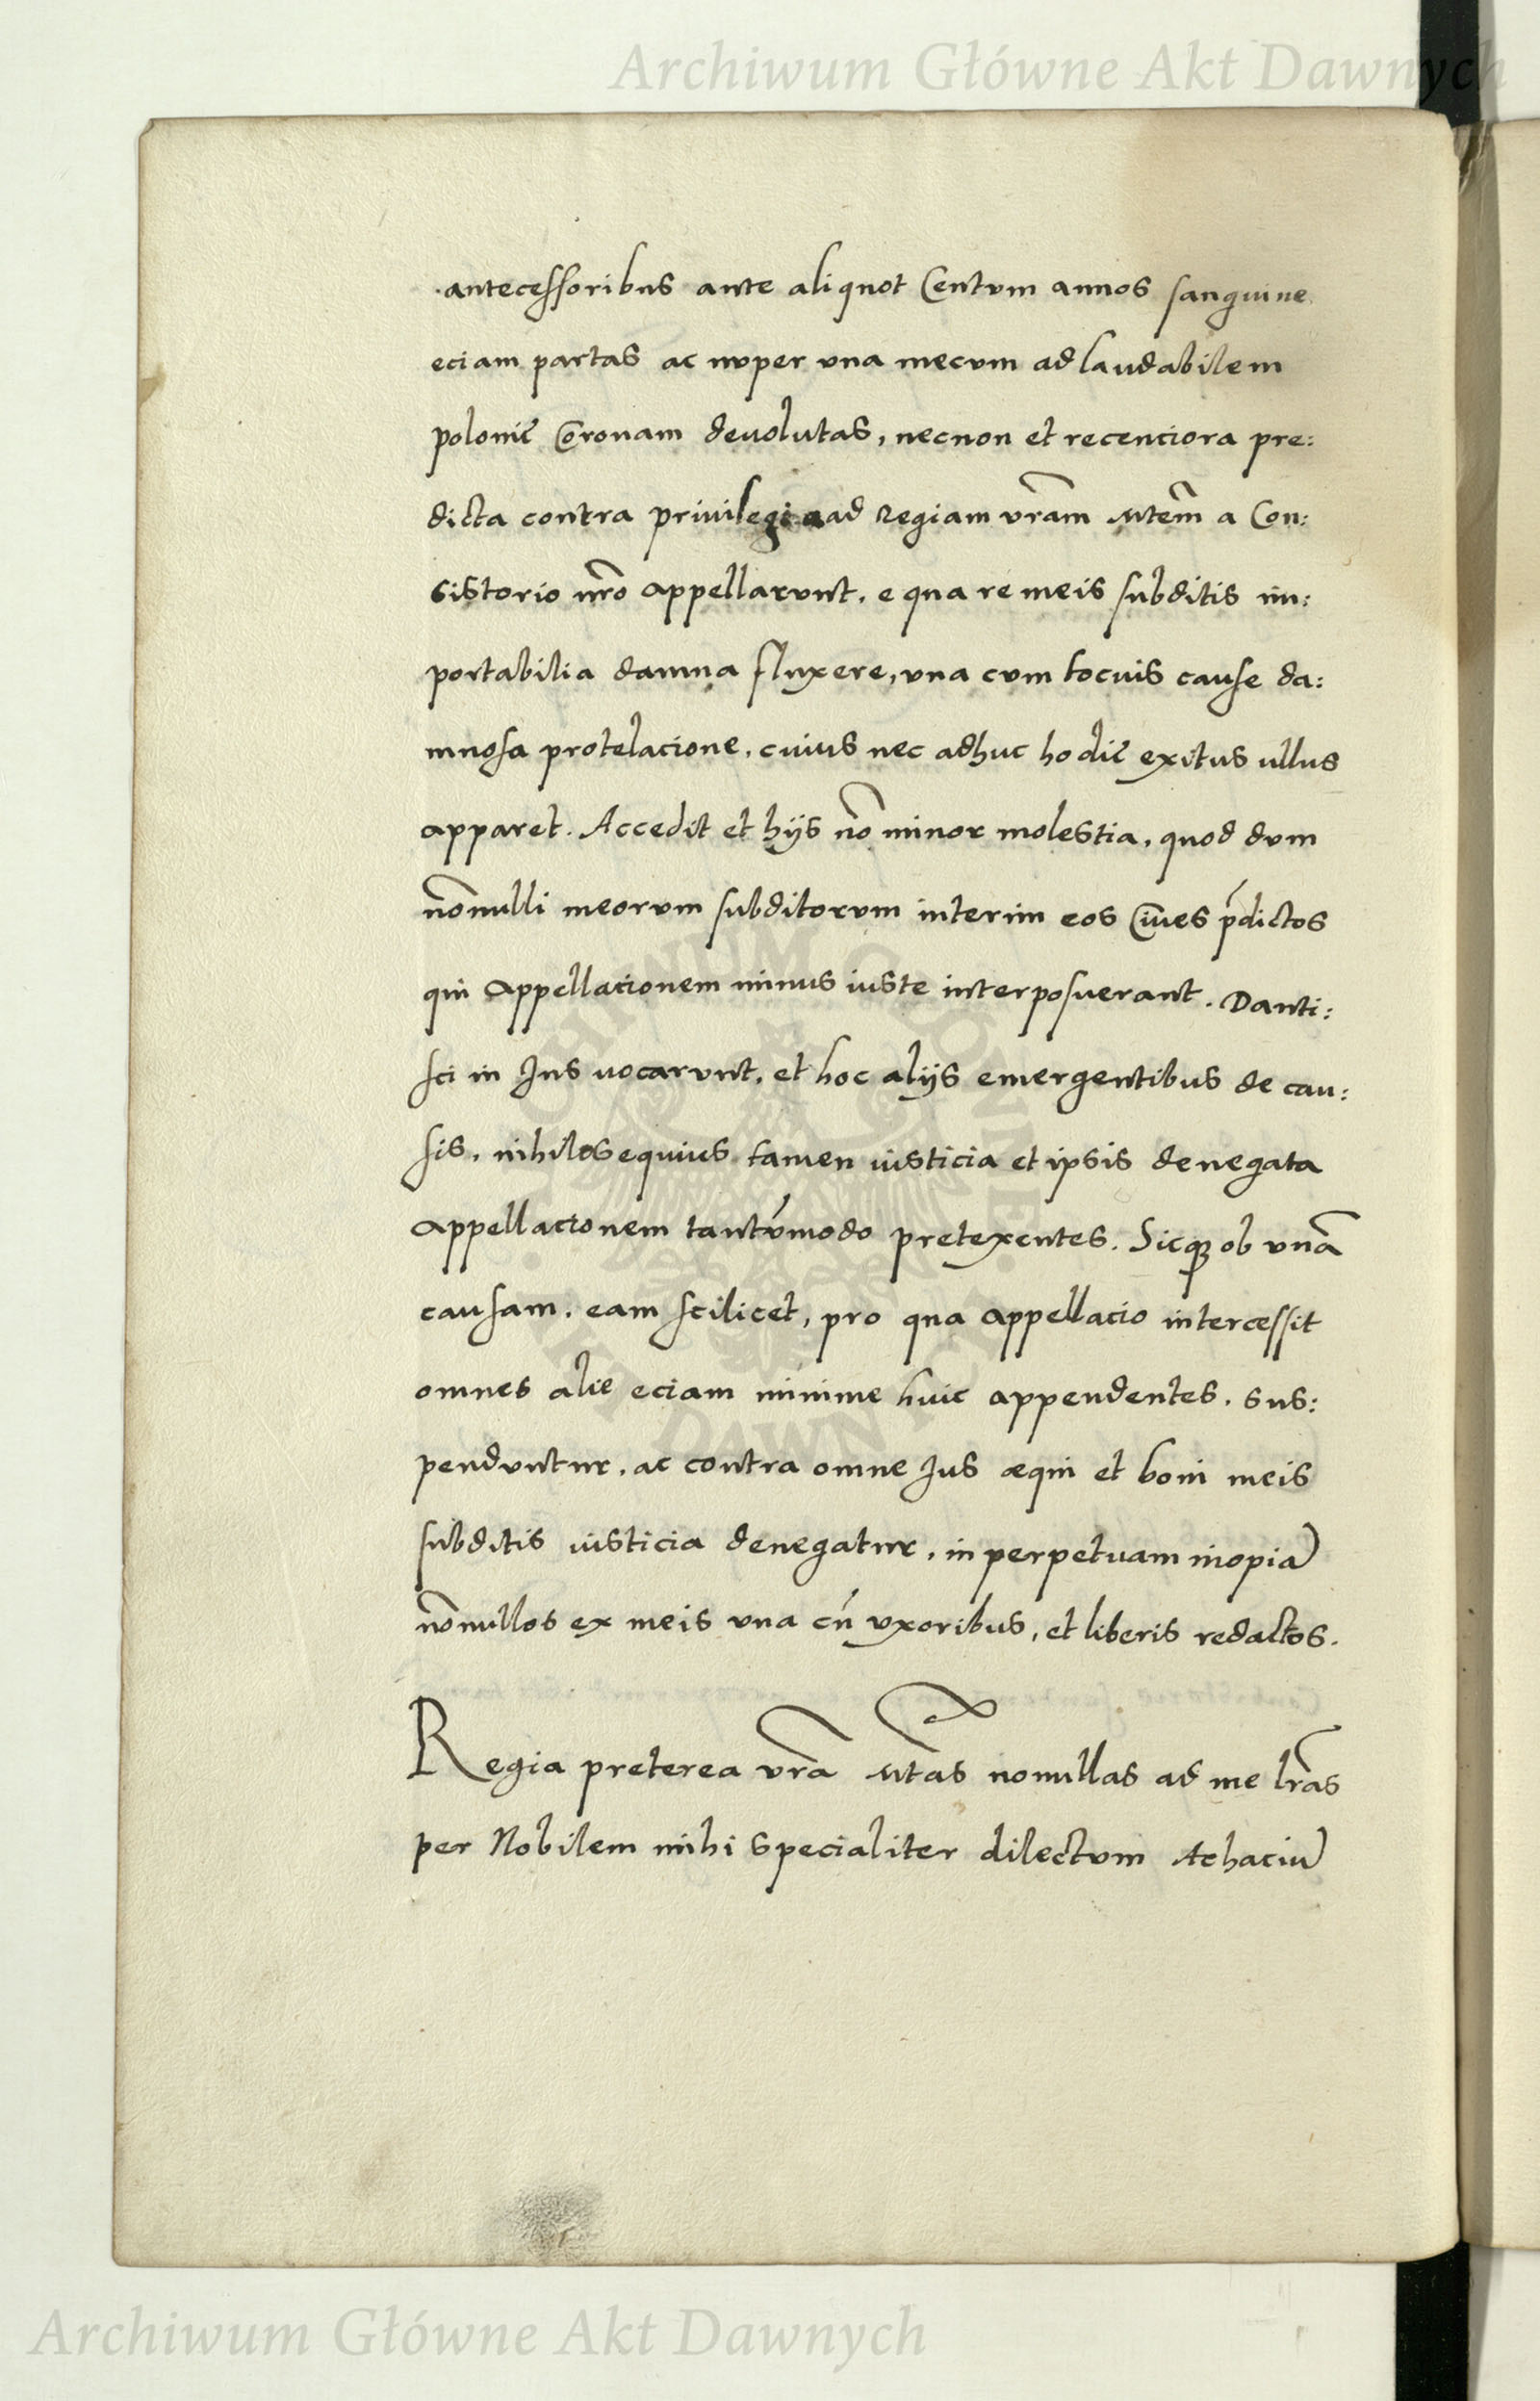 Archiwum Główne Akt Dawnych
antecessoribus ante aliquot Centum annos sanguine
eciam partas ac nuper una mecum ad laudabilem
polonię Coronam devolutas, necnon et recenciora pre:
dicta contra privilegia ad Regiam vr̃am Mtem̃ a Con:
sistorio nr̃o appellarunt, e qua re meis subditis im:
portabilia damna fluxere, una cum tocius cause da:
mnosa protelacione, cuius nec adhuc hodie exitus ullus
apparet. Accedit et hijs nõ minor molestia, quod dum
nõnulli meorum subditorum interim eos Cives p̃dictos
qui appellacionem minus iuste interposuerant. Danti:
sci in Jus vocarunt, et hoc alijs emergentibus de cau:
sis, nihilosequius tamen iusticia et ipsis denegata
appellacionem tantũmodo pretexentes. Sicq; ob unã
causam, eam scilicet, pro qua appellacio intercessit
omnes alie eciam minime huic appendentes, sus:
penduntur, ac contra omne Jus æqui et boni meis
subditis iusticia denegatur, in perpetuam inopiã
nõnullos ex meis una cũ uxoribus, et liberis redactos.
Regia preterea vr̃a Mtas̃ nonullas ad me lr̃as
per Nobilem mihi specialiter dilectum Achaciũ
ARCHIWUM GŁÓWNE
AKT DAWNYCH
Archiwum Główne Akt Dawnych